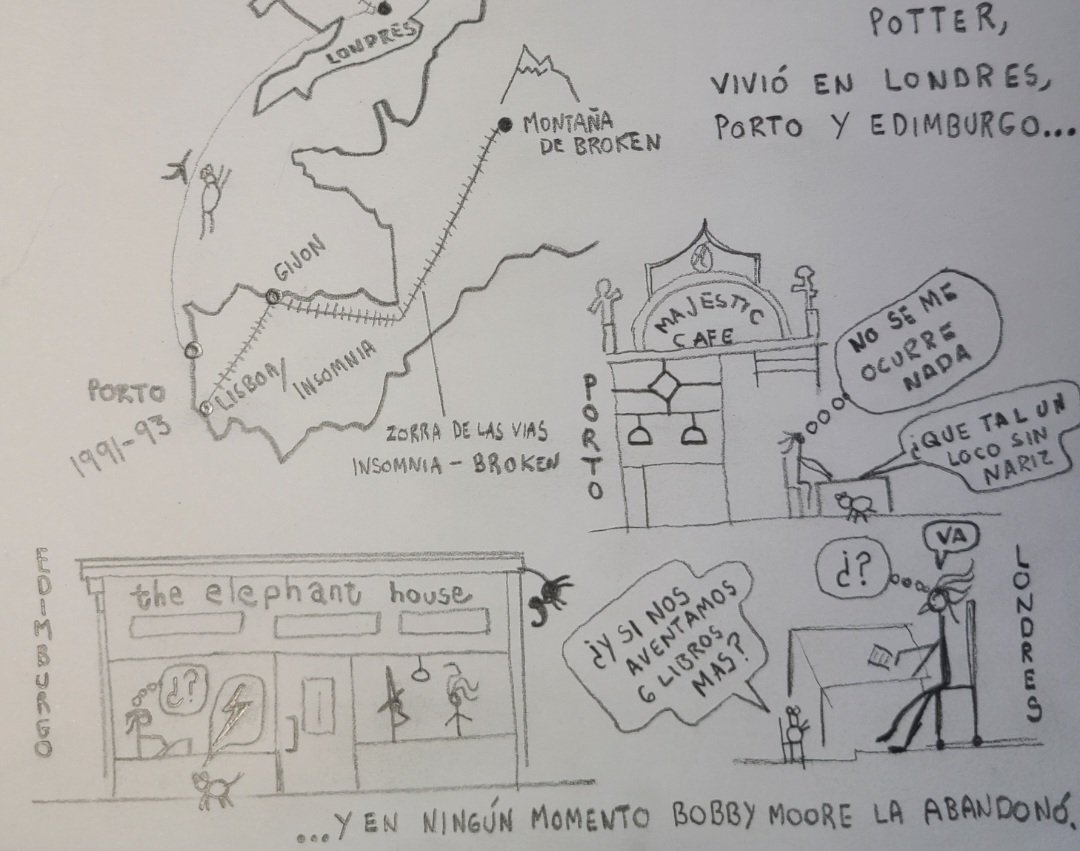 POTTER,
VIVIÓ EN LONDRES,
PORTO Y EDIMBURGO...
LONDRES
MONTAÑA
DE BROKEN
GIJON
LISBOA/
INSOMNIA
PORTO
1991-93
ZORRA DE LAS VIAS
INSOMNIA - BROKEN
MAJESTIC
CAFE
PORTO
NO SE ME
OCURRE
NADA
¿QUE TAL UN
LOCO SIN
NARIZ
EDIMBURGO
the elephant house
¿?
¿Y SI NOS
AVENTAMOS
6 LIBROS
MAS?
¿?
VA
LONDRES
...Y EN NINGÚN MOMENTO BOBBY MOORE LA ABANDONÓ.